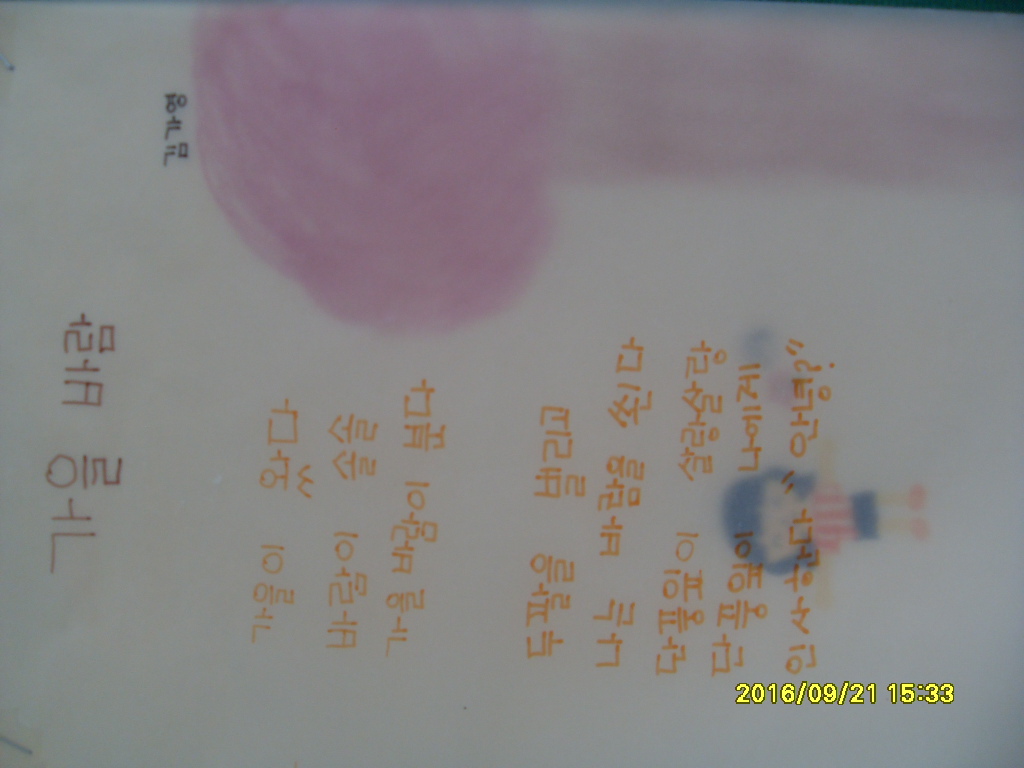 가을 바람
김가영
가을이 왔다
바람이 솔솔
가을 바람이 분다
두팔을 벌리고
나는 바람을 쐰다
단풍잎이 살랑살랑
단풍잎이 나에게
인사한다 "안녕?"
2016/09/21 15:33